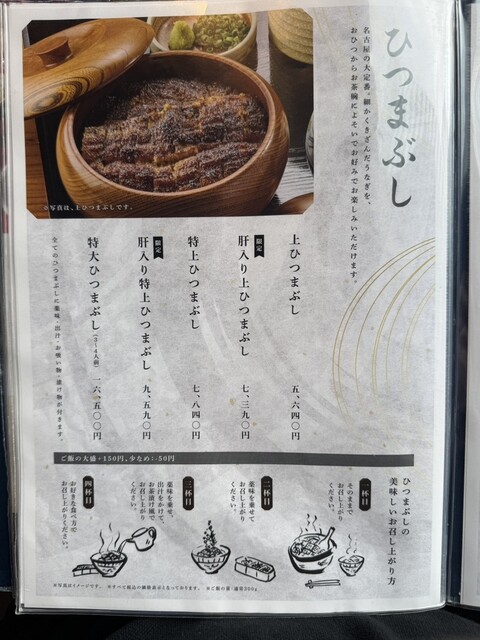 ひつまぶし
名古屋の大定番。細かくきざんだうなぎを、
おひつからお茶碗によそいでお好みでお楽しみいただけます。
※写真は、上ひつまぶしです。
上ひつまぶし 五、六四〇円
限定 肝入り上ひつまぶし 七、三九〇円
特上ひつまぶし 七、八四〇円
限定 肝入り特上ひつまぶし 九、五九〇円
特大ひつまぶし(3〜4人前) 一六、五〇〇円
全てのひつまぶしに薬味・出汁・お吸い物・漬け物が付きます。
ご飯の大盛+150円、少なめ:-50円
ひつまぶしの
美味しいお召し上がり方
一杯目
そのままで
お召し上がり
ください。
二杯目
薬味を乗せて
お召し上がり
ください。
三杯目
薬味を乗せ、
出汁をかけて、
お茶漬け風で
お召し上がり
ください。
四杯目
お好きな食べ方で
お召し上がりください。
※写真はイメージです。 ※すべて税込の価格表示となっております。 ※ご飯の量:通常300g